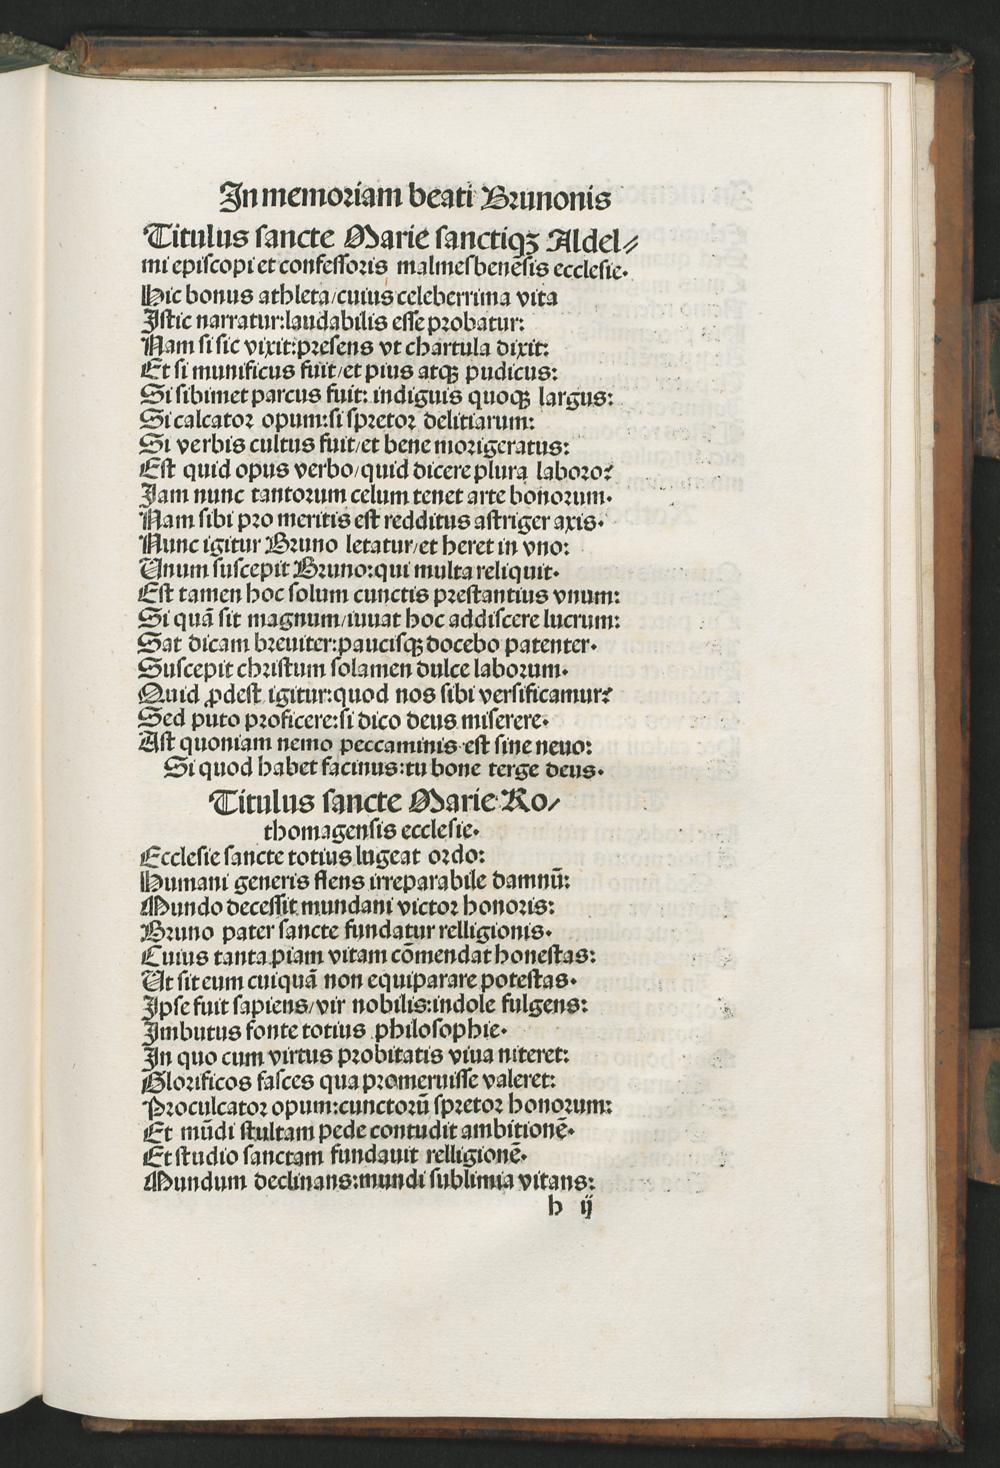 In memoriam beati Brunonis
Titulus sancte Marie sanctiqꝫ Aldel⸗
mi episcopi et confessoris malmesbenẽsis ecclesie.
Hic bonus athleta/cuius celeberrima vita
Istic narratur:laudabilis esse probatur:
Nam si sic vixit:presens vt chartula dixit:
Et si munificus fuit/et pius atqꝫ pudicus:
Si sibimet parcus fuit: indiguis quoqꝫ largus:
Si calcator opum:si spretor delitiarum:
Si verbis cultus fuit/et bene morigeratus:
Est quid opus verbo/quid dicere plura laboro?
Iam nunc tantorum celum tenet arte bonorum.
Nam sibi pro meritis est redditus astriger axis.
Nunc igitur Bruno letatur/et heret in vno:
Unum suscepit Bruno:qui multa reliquit.
Est tamen hoc solum cunctis prestantius vnum:
Si quã sit magnum/iuuat hoc addiscere lucrum:
Sat dicam breuiter:paucisqꝫ docebo patenter.
Suscepit christum solamen dulce laborum.
Quid ꝓdest igitur:quod nos sibi versificamur?
Sed puto proficere:si dico deus miserere.
Ast quoniam nemo peccaminis est sine neuo:
Si quod habet facinus:tu bone terge deus.
Titulus sancte Marie Ro/
thomagensis ecclesie.
Ecclesie sancte totius lugeat ordo:
Humani generis flens irreparabile damnũ:
Mundo decessit mundani victor honoris:
Bruno pater sancte fundatur relligionis.
Cuius tanta piam vitam cõmendat honestas:
Ut sit eum cuiquã non equiparare potestas.
Ipse fuit sapiens/vir nobilis:indole fulgens:
Imbutus fonte totius philosophie.
In quo cum virtus probitatis viua niteret:
Glorificos fasces qua promeruisse valeret:
Proculcator opum:cunctorũ spretor honorum:
Et mũdi stultam pede contudit ambitionẽ.
Et studio sanctam fundauit relligionẽ.
Mundum declinans:mundi sublimia vitans:
b ij